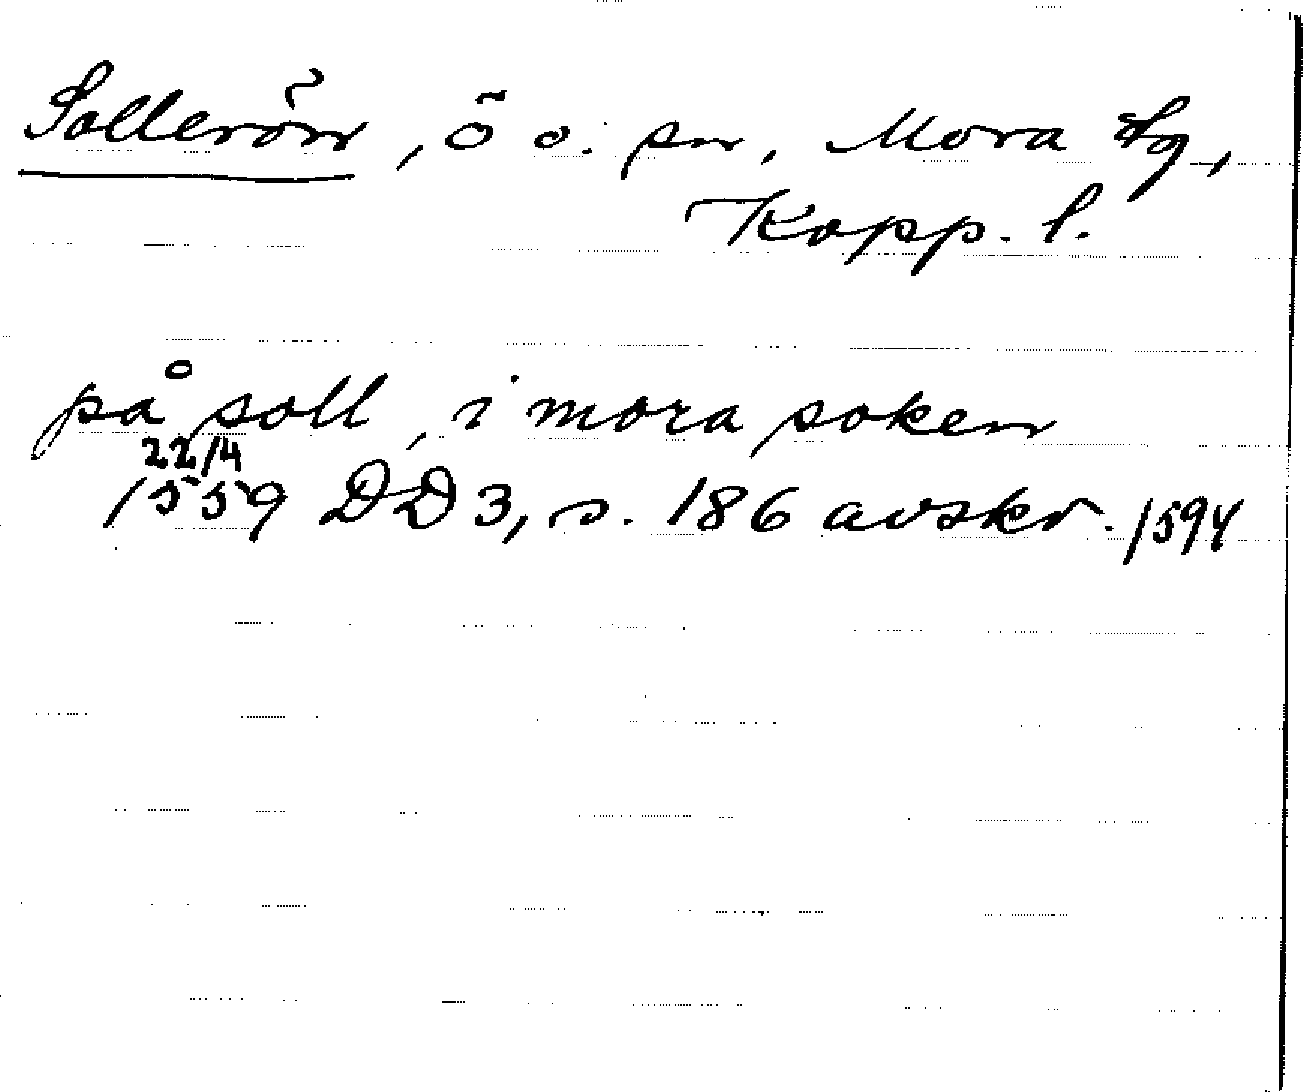 Sollerön, ö o. sn, Mora tg,
Kopp. l.
på soll, i mora soken
22/4
1559 DD 3, s. 186 avskr. 1594